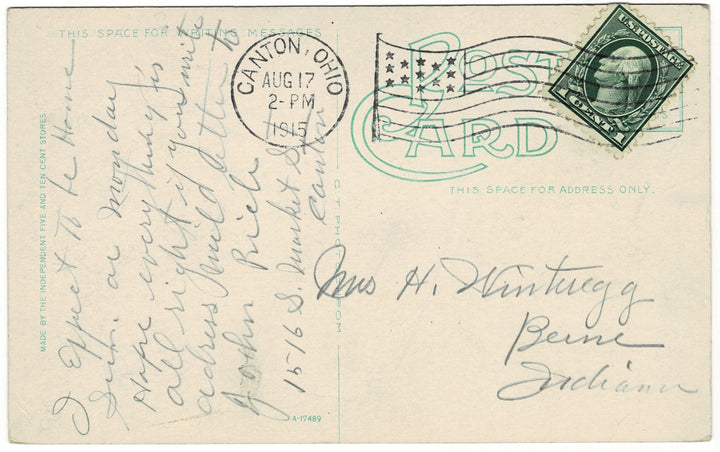 THIS SPACE FOR WRITING MESSAGES
MADE BY THE INDEPENDENT FIVE AND TEN CENT STORES
I expect to be Home
Sun. or Monday
Hope everything is
all right if you write
address mild letter to
John Rich
1516 S. Market S
Canton
CANTON, OHIO
AUG 17
2-PM
1915
POST
CARD
U.S. POSTAGE
1 CENT 1
THIS SPACE FOR ADDRESS ONLY.
Mrs H. Winteregg
Berne
Indiana
A-17489